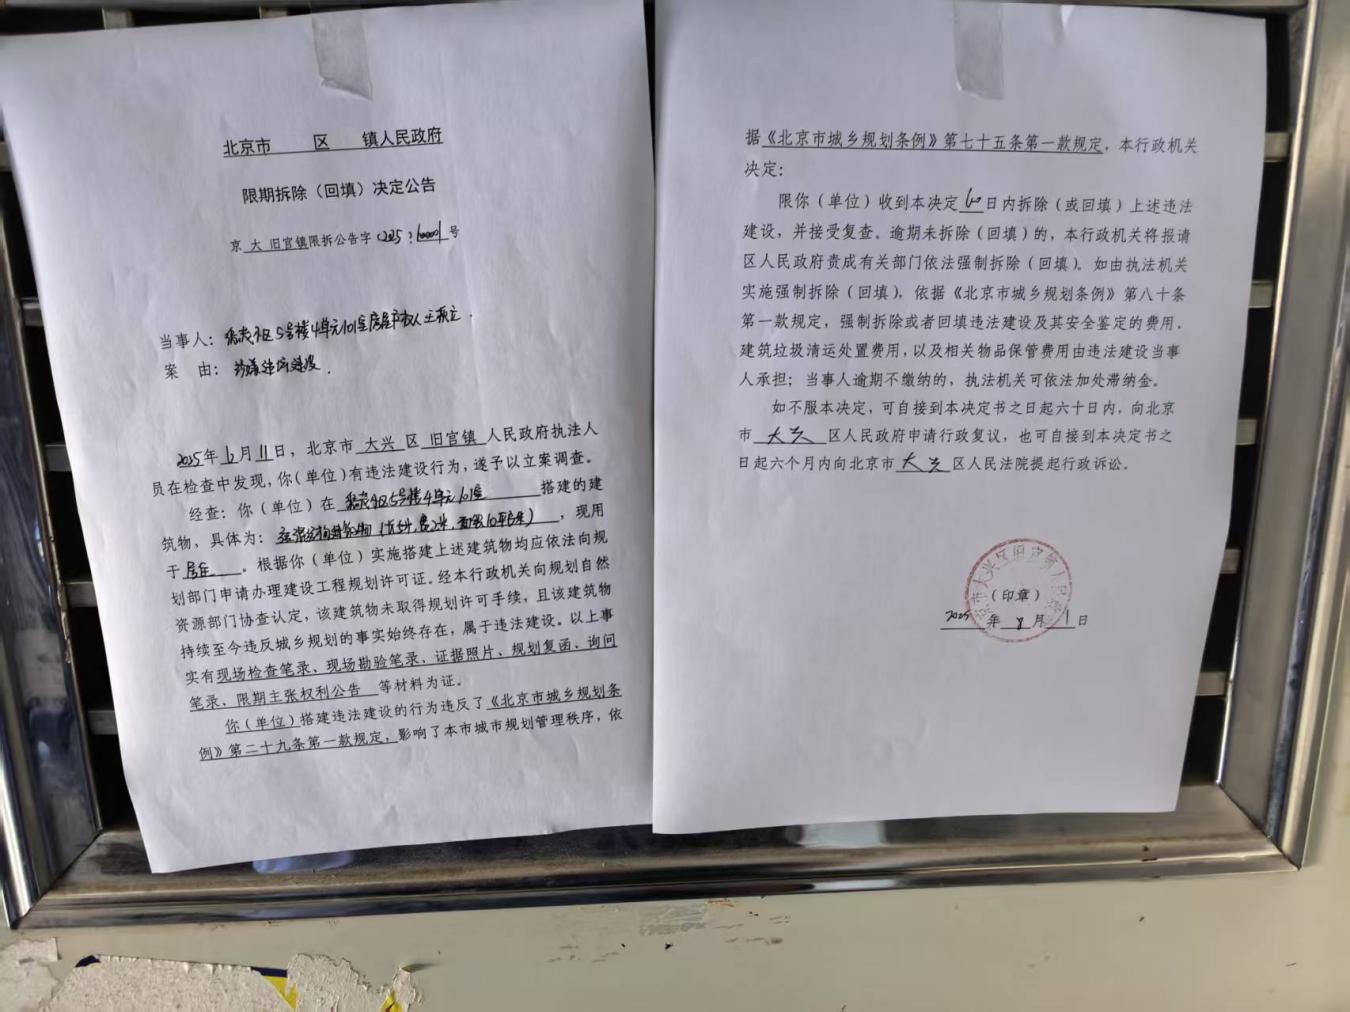 北京市 区 镇人民政府
限期拆除（回填）决定公告
京 大 旧宫镇限拆公告字（2025）号
当事人： 5号楼4单元101室房屋产权人王
案 由： 涉嫌违法建设.
2025年6月11日，北京市 大兴 区 旧宫镇 人民政府执法人
员在检查中发现，你（单位）有违法建设行为，遂予以立案调查。
经查：你（单位）在 5号楼4单元101室 搭建的建
筑物，具体为： ，现用
于 居住 。根据你（单位）实施搭建上述建筑物均应依法向规
划部门申请办理建设工程规划许可证。经本行政机关向规划自然
资源部门协查认定，该建筑物未取得规划许可手续，且该建筑物
持续至今违反城乡规划的事实始终存在，属于违法建设。以上事
实有现场检查笔录、现场勘验笔录、证据照片、规划复函、询问
笔录、限期主张权利公告 等材料为证。
你（单位）搭建违法建设的行为违反了《北京市城乡规划条
例》第二十九条第一款规定，影响了本市城市规划管理秩序，依
据《北京市城乡规划条例》第七十五条第一款规定，本行政机关
决定：
限你（单位）收到本决定 日内拆除（或回填）上述违法
建设，并接受复查。逾期未拆除（回填）的，本行政机关将报请
区人民政府责成有关部门依法强制拆除（回填）。如由执法机关
实施强制拆除（回填），依据《北京市城乡规划条例》第八十条
第一款规定，强制拆除或者回填违法建设及其安全鉴定的费用、
建筑垃圾清运处置费用，以及相关物品保管费用由违法建设当事
人承担；当事人逾期不缴纳的，执法机关可依法加处滞纳金。
如不服本决定，可自接到本决定书之日起六十日内，向北京
市 大兴 区人民政府申请行政复议，也可自接到本决定书之
日起六个月内向北京市 大兴 区人民法院提起行政诉讼。
（印章）
2025 年 8 月 1 日